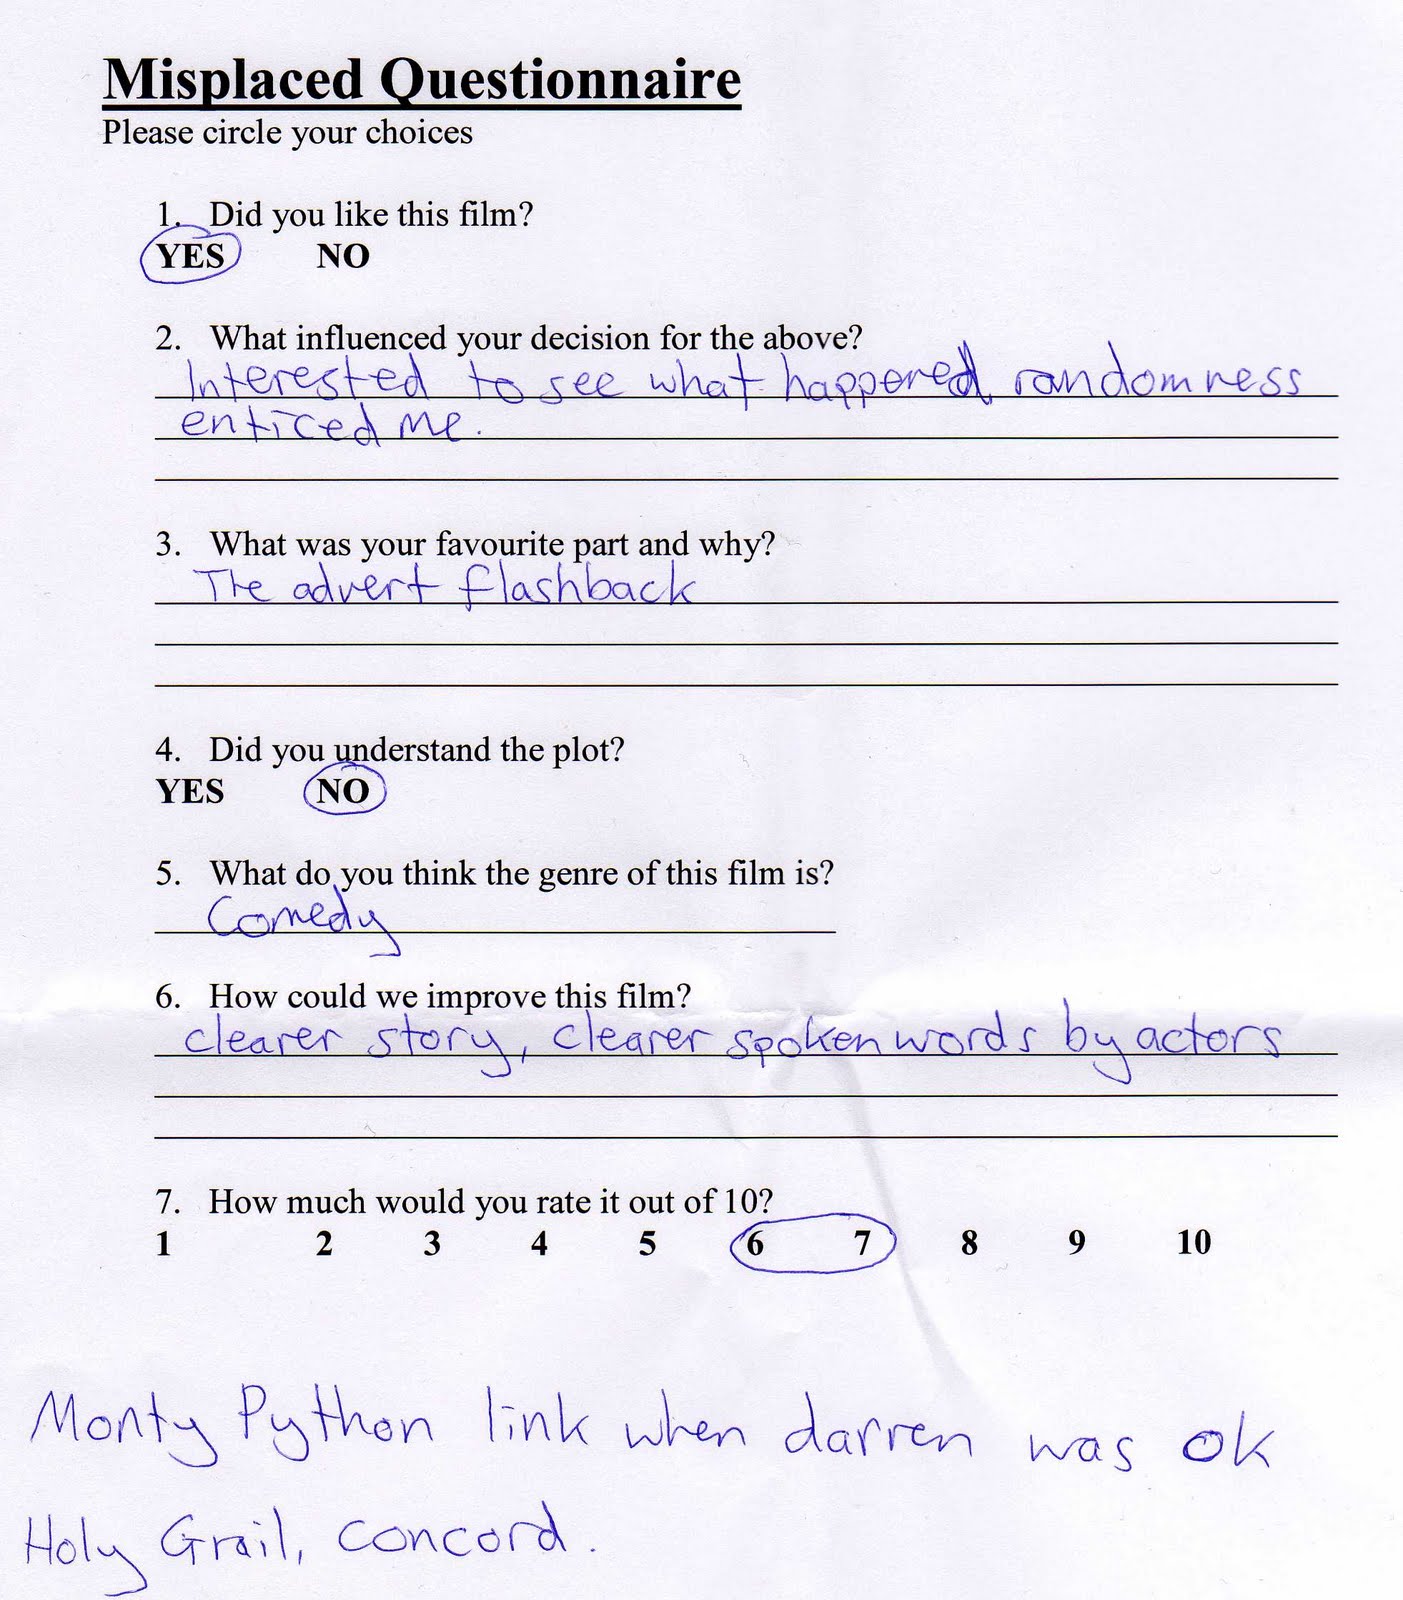 Misplaced Questionnaire
Please circle your choices
1. Did you like this film?
YES NO
2. What influenced your decision for the above?
Interested to see what happened, randomness
enticed me.
3. What was your favourite part and why?
The advert flashback
4. Did you understand the plot?
YES NO
5. What do you think the genre of this film is?
Comedy
6. How could we improve this film?
clearer story, clearer spoken words by actors
7. How much would you rate it out of 10?
1 2 3 4 5 6 7 8 9 10
Monty Python link when darren was ok
Holy Grail, concord.